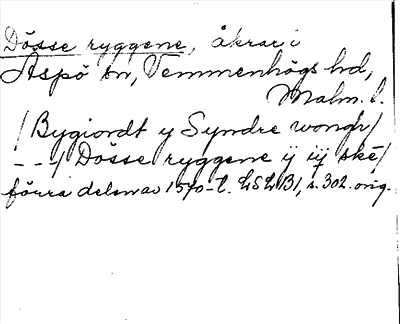 Dösse ryggene, åkrar i
Äspö sn, Vemmenhögs hd,
Malm. l.
/Bygiordt y Syndre wongh/
- - -/ Dösse ryggene ÿ iÿ ske/
förra delen av 1570-t. LSLB1, s. 302. orig.